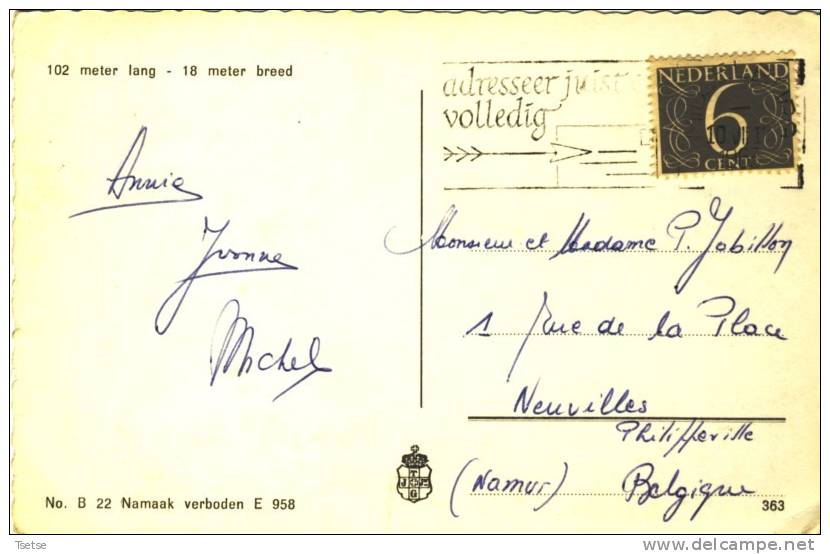 102 meter lang - 18 meter breed
adresseer juist
volledig
NEDERLAND
6
CENT
Annie
Yvonne
Michel
Monsieur et Madame P. Jabillon
1 Rue de la Place
Neuvilles
Philippeville
(Namur) Belgique
No. B 22 Namaak verboden E 958
363
Tsetse
delcampe.net